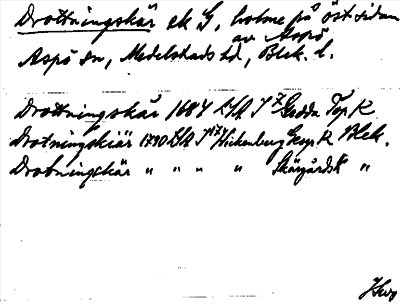 Drottningskär ek G, holme på östsidan
av Aspö
Aspö sn, Medelstads hd, Blek. l.
Drottningskär 1684 LSA Gedda Top. K
Drotningskiär 1790 LSA Wickenberg Geogr. K Blek.
Drotningskär " " " " Skärgårdsk "